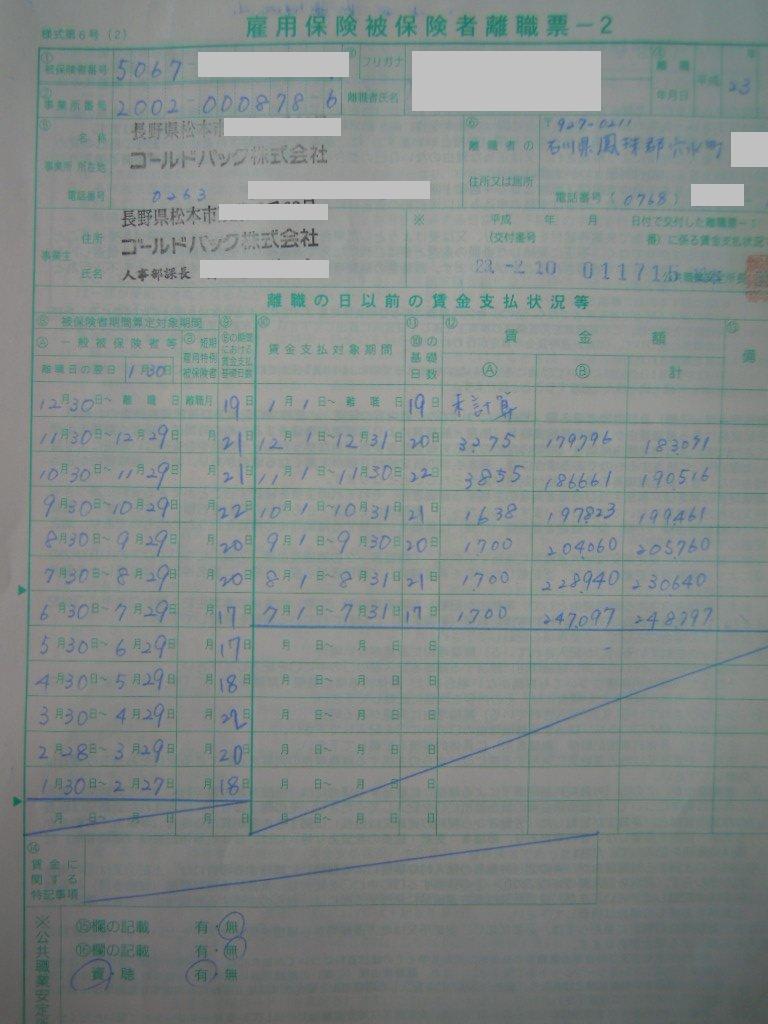 様式第6号(2)
雇用保険被保険者離職票-2
① 被保険者番号 5067-
フリガナ
④ 離職 年月日 平成 年 23
② 事業所番号 2002-000878-6
離職者氏名
⑤ 名称 長野県松本市
事業所 所在地 ゴールドパック株式会社
電話番号 0263
⑥ 離職者の 住所又は居所 〒927-0211
石川県鳳珠郡穴水町
電話番号(0768)
事業主 住所 長野県松本市
ゴールドパック株式会社
氏名 人事部課長
※ 平成 年 月 日付で交付した離職票-
(交付番号 番)に係る賃金支払状況
23.-2.10 011715
離職の日以前の賃金支払状況等
⑧ 被保険者期間算定対象期間
Ⓐ 一般被保険者等
離職日の翌日 1月30日
Ⓑ 短期雇用特例被保険者
⑨ ⑧の期間における賃金支払基礎日数
⑩ 賃金支払対象期間
⑪ ⑩の基礎日数
⑫ 賃金額
Ⓐ Ⓑ 計
⑬ 備
12月30日~離職日 離職月 19日 1月1日~離職日 19日 未計算
11月30日~12月29日 月 21日 12月1日~12月31日 20日 3275 179796 183071
10月30日~11月29日 月 21日 11月1日~11月30日 22日 3855 186661 190516
9月30日~10月29日 月 22日 10月1日~10月31日 21日 1638 197823 199461
8月30日~9月29日 月 20日 9月1日~9月30日 20日 1700 204060 205760
7月30日~8月29日 月 20日 8月1日~8月31日 21日 1700 228940 230640
6月30日~7月29日 月 17日 7月1日~7月31日 17日 1700 247097 248797
5月30日~6月29日 月 17日 月 日~ 月 日 日
4月30日~5月29日 月 18日 月 日~ 月 日 日
3月30日~4月29日 月 22日 月 日~ 月 日 日
2月28日~3月29日 月 20日 月 日~ 月 日 日
1月30日~2月27日 月 18日 月 日~ 月 日 日
月 日~ 月 日 月 日 月 日~ 月 日 日
⑭ 賃金に関する特記事項
※公共職業安定所
⑮欄の記載 有・無
⑯欄の記載 有・無
資・聴 有・無